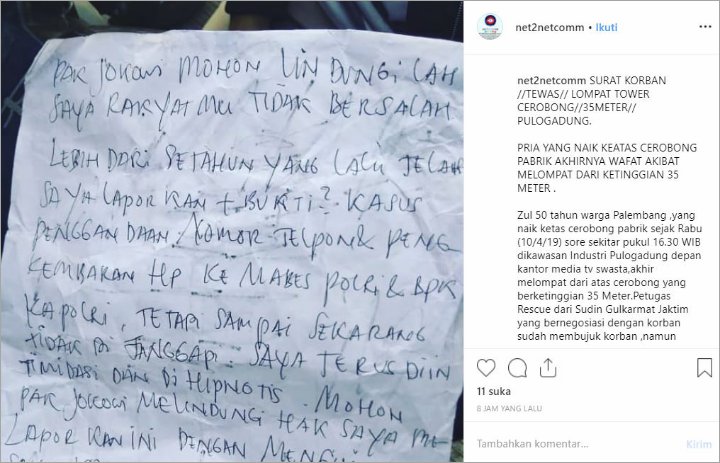 PAK JOKOWI MOHON LINDUNGILAH
SAYA RAKYAT MU TIDAK BERSALAH
LEBIH DARI SETAHUN YANG LALU TELAH
SAYA LAPOR KAN + BUKTI2 KASUS
PENGGANDAAN, NOMOR TELPON & PENG
KEMBARAN HP KE MABES POLRI & BPK
KAPOLRI, TETAPI SAMPAI SEKARANG
TIDAK DI TANGGAPI. SAYA TERUS DIIN
TIMIDASI DAN DI HIPNOTIS. MOHON
PAK JOKOWI MELINDUNGI HAK SAYA ME
LAPOR KAN INI DENGAN
net2netcomm • Ikuti
net2netcomm SURAT KORBAN
//TEWAS// LOMPAT TOWER
CEROBONG//35METER//
PULOGADUNG.
PRIA YANG NAIK KEATAS CEROBONG
PABRIK AKHIRNYA WAFAT AKIBAT
MELOMPAT DARI KETINGGIAN 35
METER .
Zul 50 tahun warga Palembang ,yang
naik ketas cerobong pabrik sejak Rabu
(10/4/19) sore sekitar pukul 16.30 WIB
dikawasan Industri Pulogadung depan
kantor media tv swasta,akhir
melompat dari atas cerobong yang
berketinggian 35 Meter.Petugas
Rescue dari Sudin Gulkarmat Jaktim
yang bernegosiasi dengan korban
sudah membujuk korban ,namun
11 suka
8 JAM YANG LALU
Tambahkan komentar...
Kirim